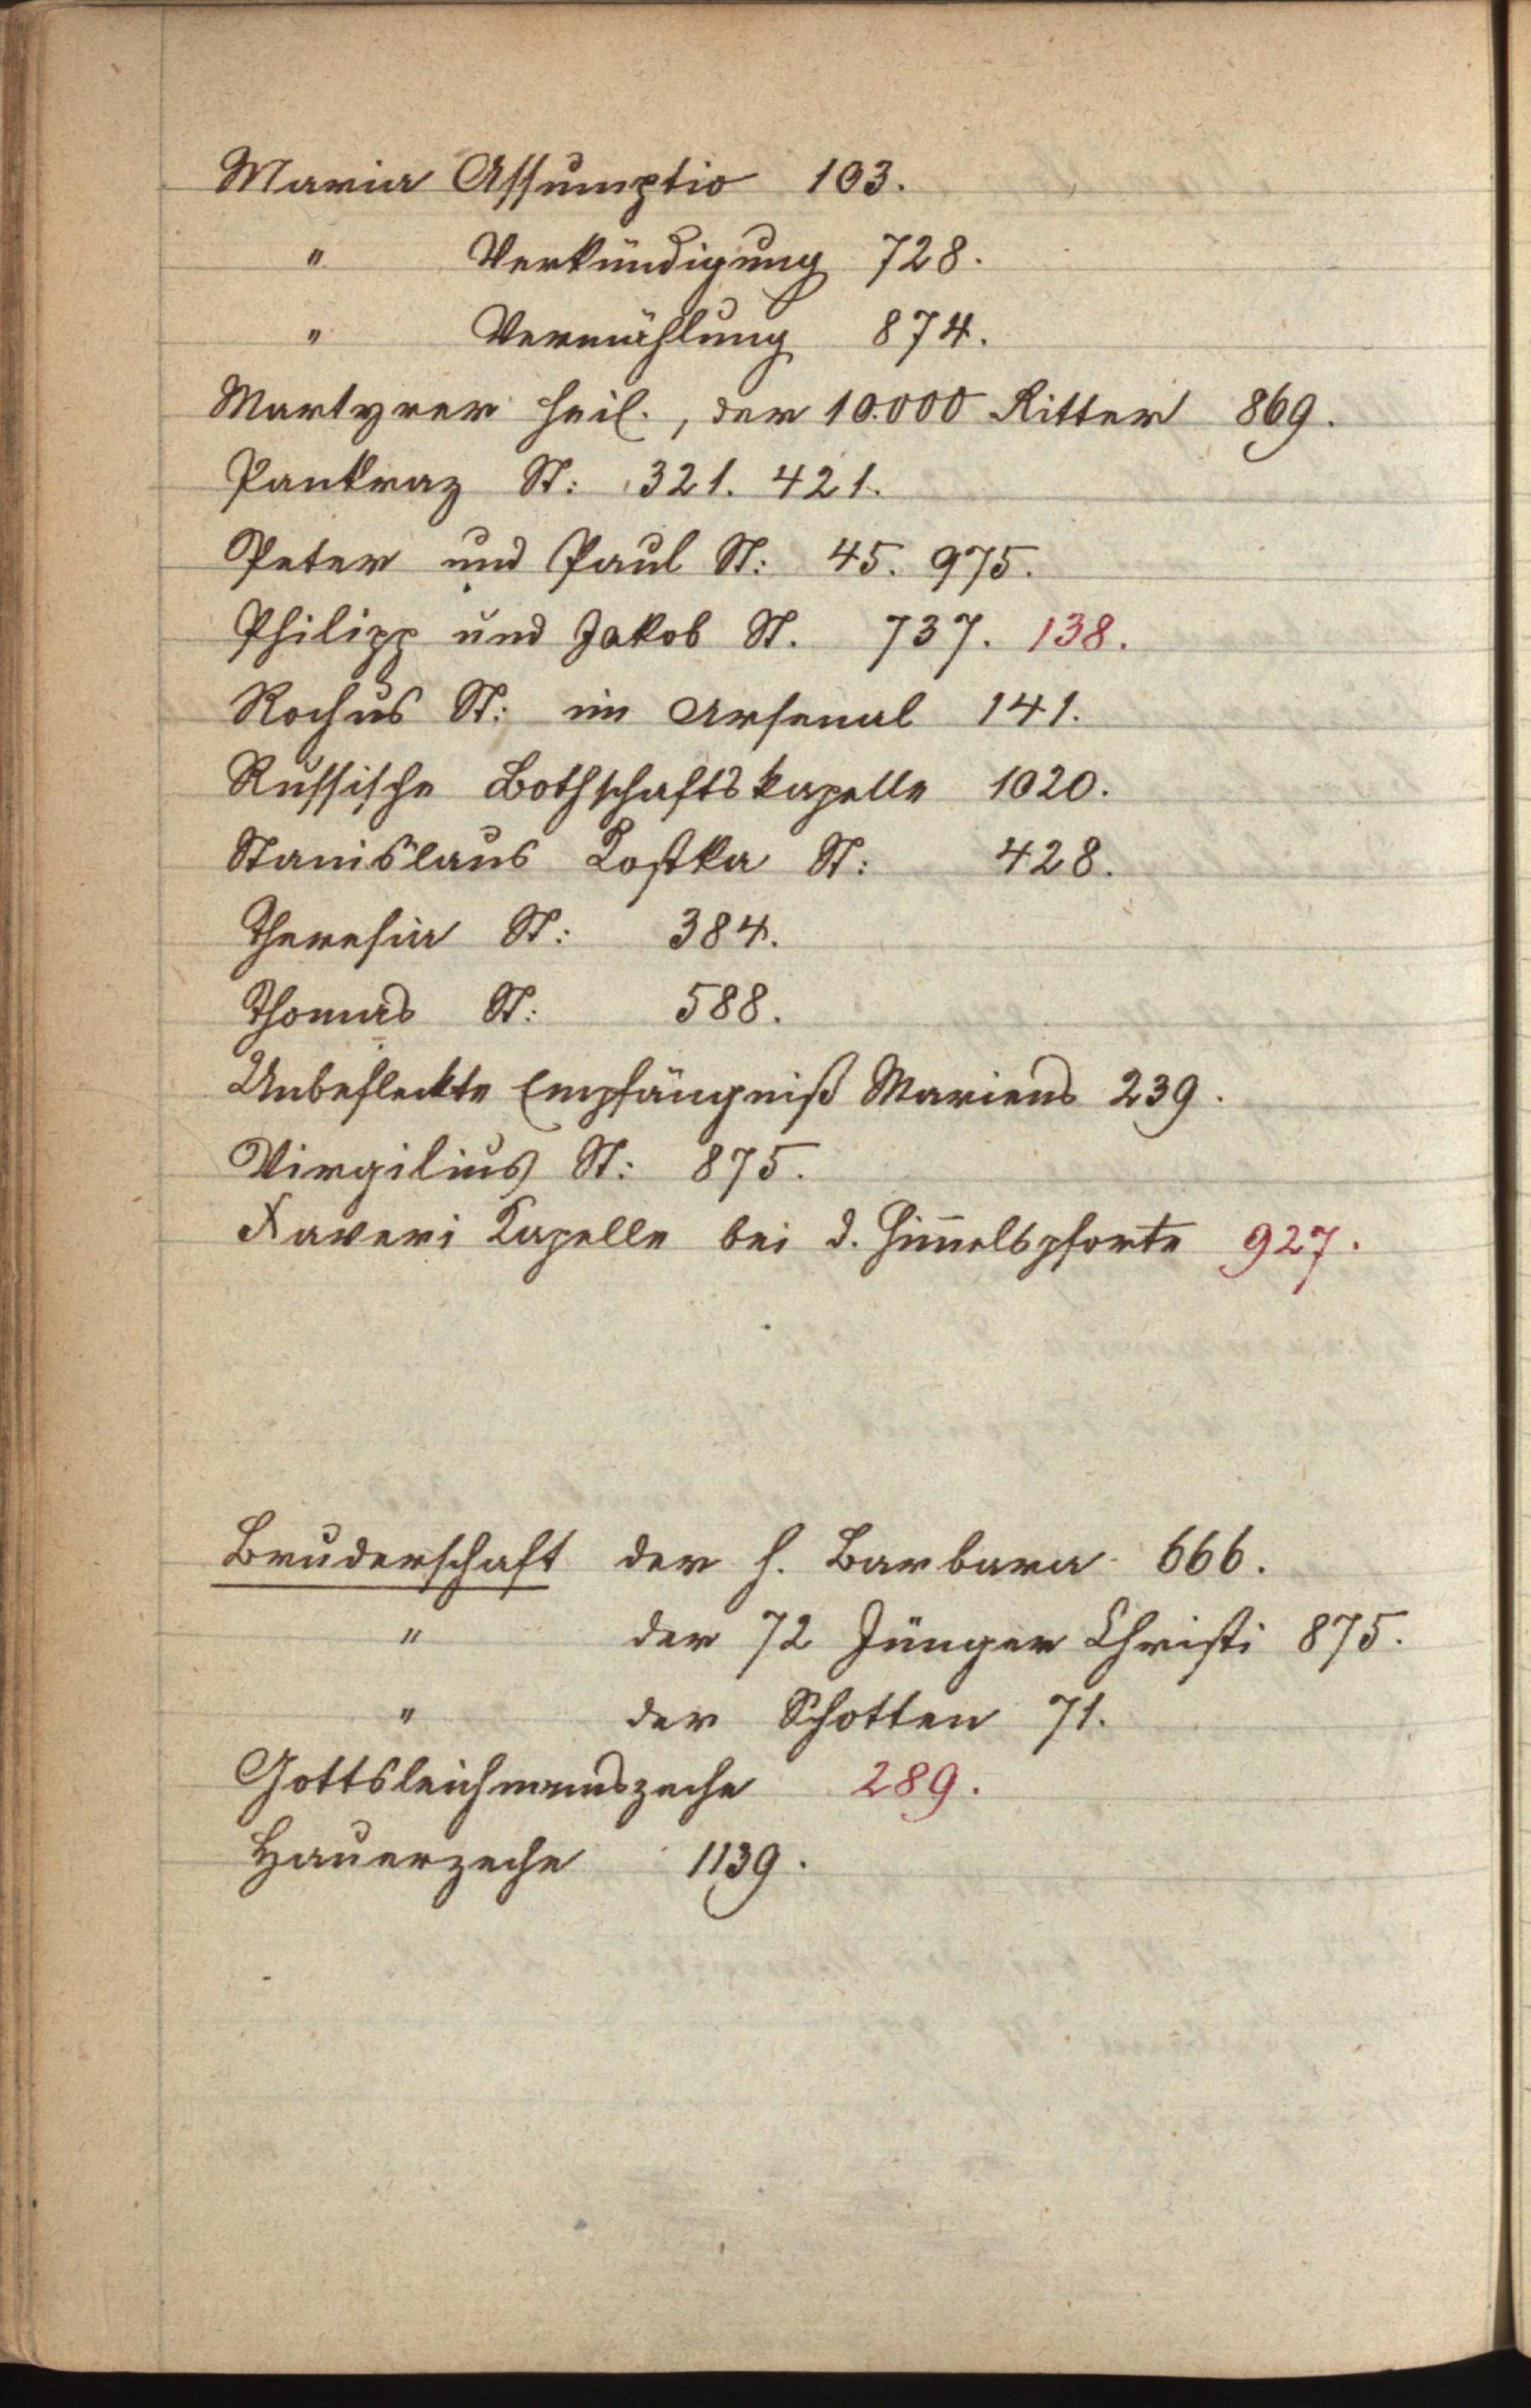 Maria Assumptio 103.
" Verkündigung 728.
" Vermählung 874.
Martyrer heil., der 10.000 Ritter 869.
Pankraz St: 321. 421.
Peter und Paul St: 45. 975.
Philipp und Jakob St. 737. 138.
Rochus St: im Arsenal 141.
Russische Bothschaftskapelle 1020.
Stanislaus Kostka St: 428.
Theresia St: 384.
Thomas St: 588.
Unbefleckte Empfängniß Mariens 239.
Virgilius St: 875.
Xaveri Kapelle bei d. Him̄elspforte 927.
Bruderschaft der h. Barbara 666.
" der 72 Jünger Christi 875.
" der Schotten 71.
Gottsleichnamszeche 289.
Hauerzeche 1139.